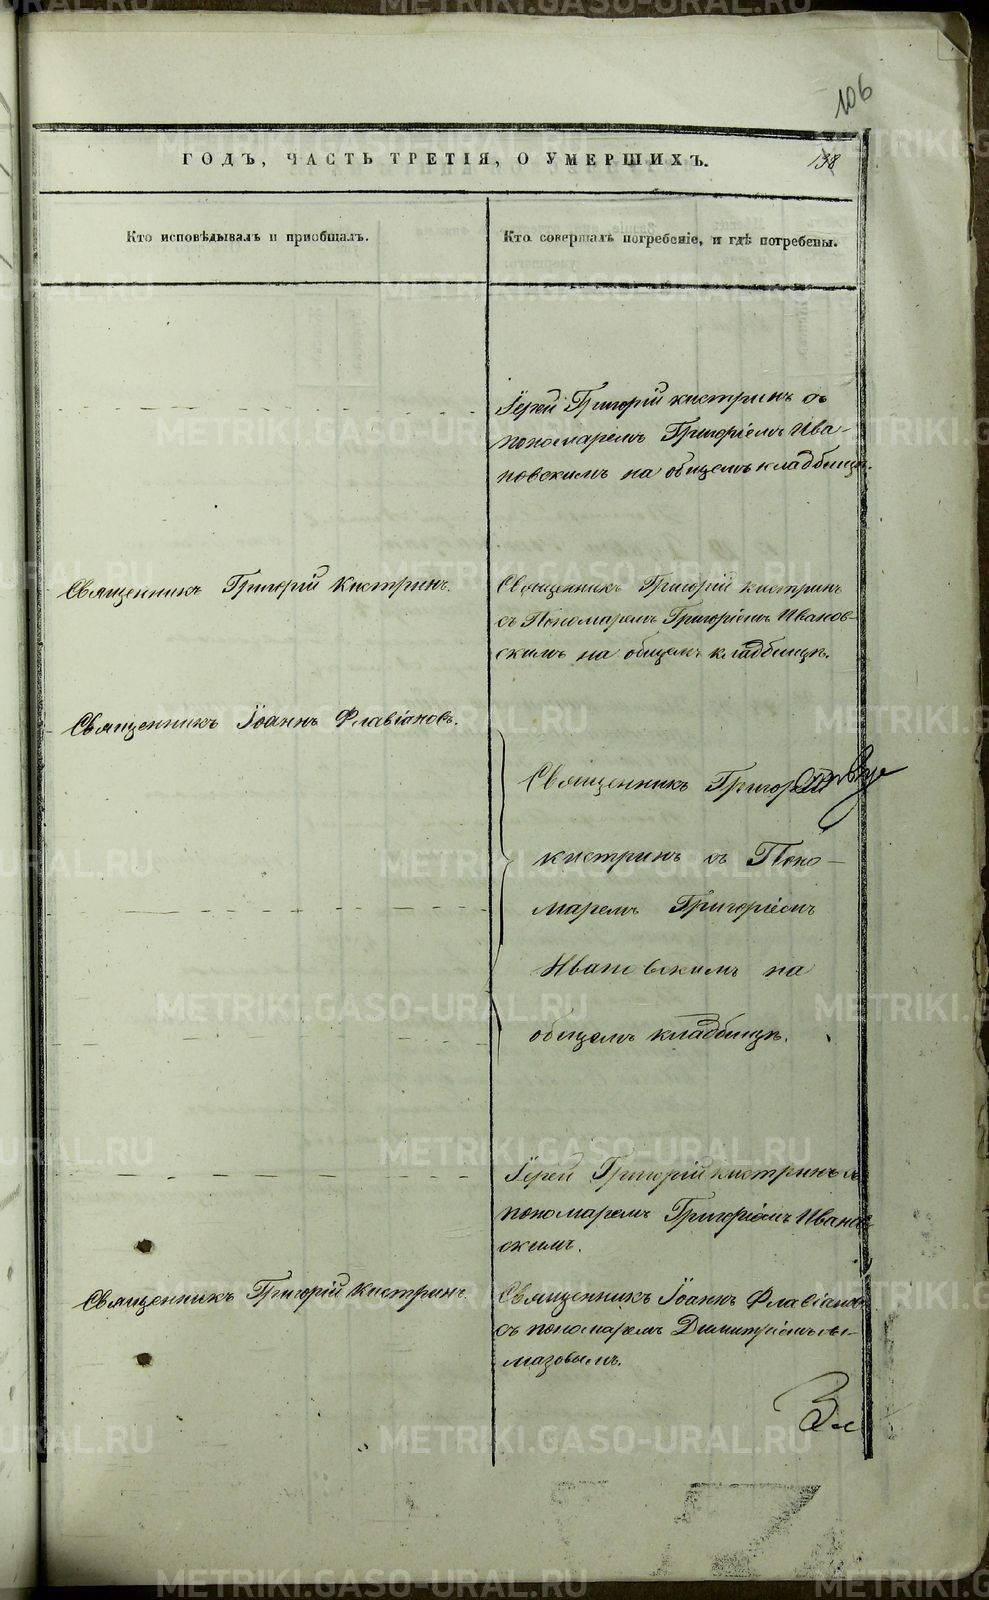 106
ГОДЪ, ЧАСТЬ ТРЕТІЯ, О УМЕРШИХЪ.
138
Кто исповѣдывалъ и приобщалъ.
Кто совершалъ погребеніе, и гдѣ погребены.
Іерей Григорій Кистринъ съ
пономаремъ Григоріемъ Ива-
новскимъ на общемъ кладбищѣ.
Священникъ Григорій Кистринъ.
Священникъ Григорій Кистринъ
съ Пономаремъ Григоріемъ Иванов-
скимъ на общемъ кладбищѣ.
Священникъ Іоаннъ Флавіановъ.
Священникъ Григорій
Кистринъ съ Поно-
маремъ Григоріемъ
Ивановскимъ на
общемъ кладбищѣ.
Іерей Григорій Кистринъ съ
пономаремъ Григоріемъ Иванов
скимъ.
Священникъ Григорій Кистринъ.
Священникъ Іоаннъ Флавіановъ
съ пономаремъ Димитріемъ
мазовымъ.
METRIKI.GASO-URAL.RU